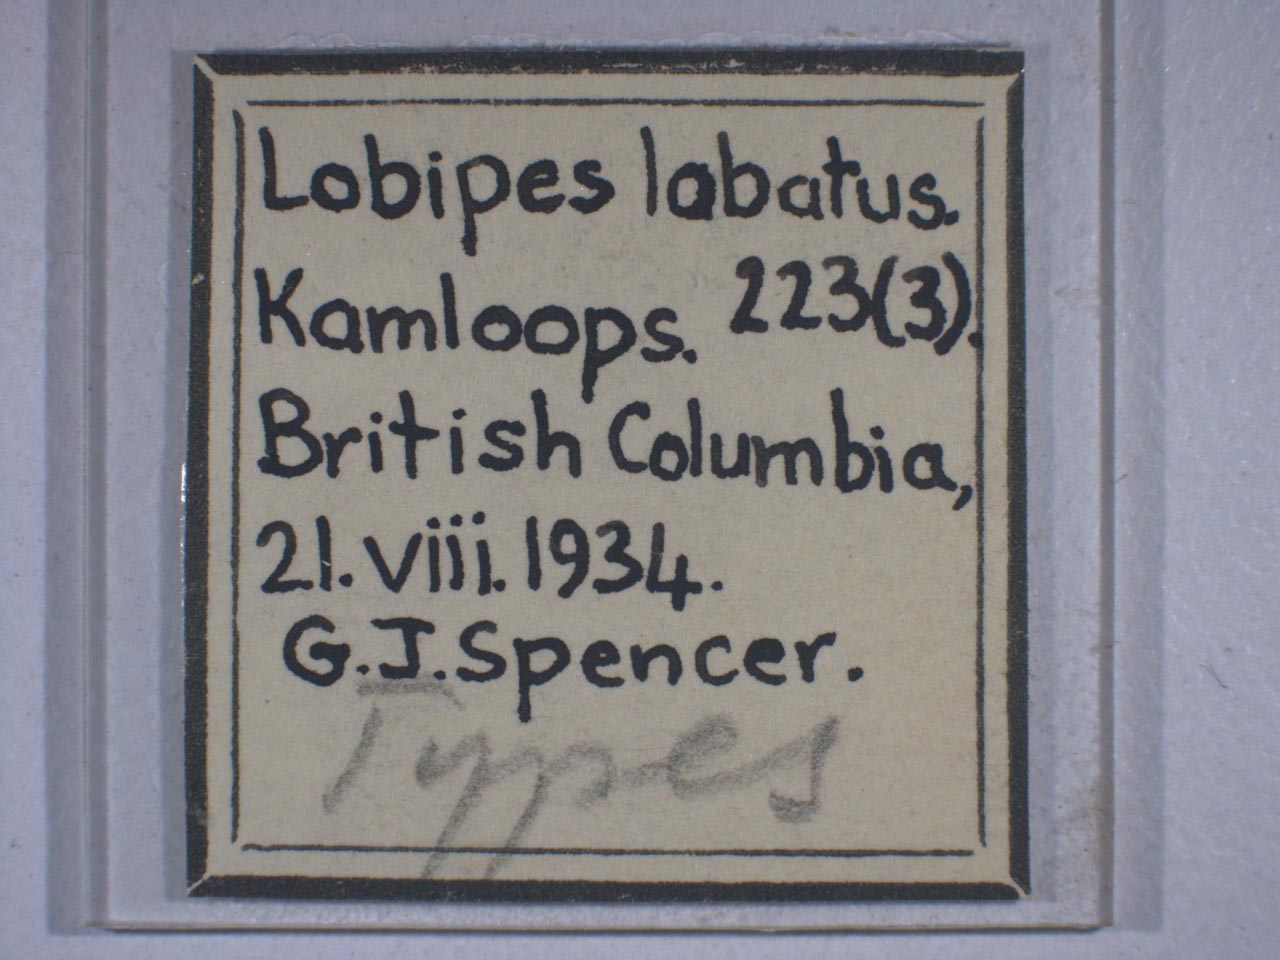 Lobipes labatus.
Kamloops. 223(3).
British Columbia,
21.viii.1934.
G.J.Spencer.
Types